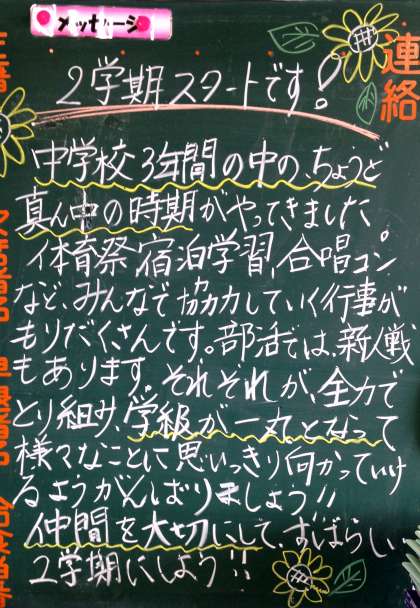 メッセージ
連絡
2学期スタートです!
中学校3年間の中の、ちょうど
真ん中の時期がやってきました。
体育祭、宿泊学習、合唱コン
など、みんなで協力していく行事が
もりだくさんです。部活では、新人戦
もあります。それぞれが、全力で
とり組み、学級が一丸となって
様々なことに思いっきり向かっていけ
るようがんばりましょう!!
仲間を大切にして、すばらしい
2学期にしよう!!